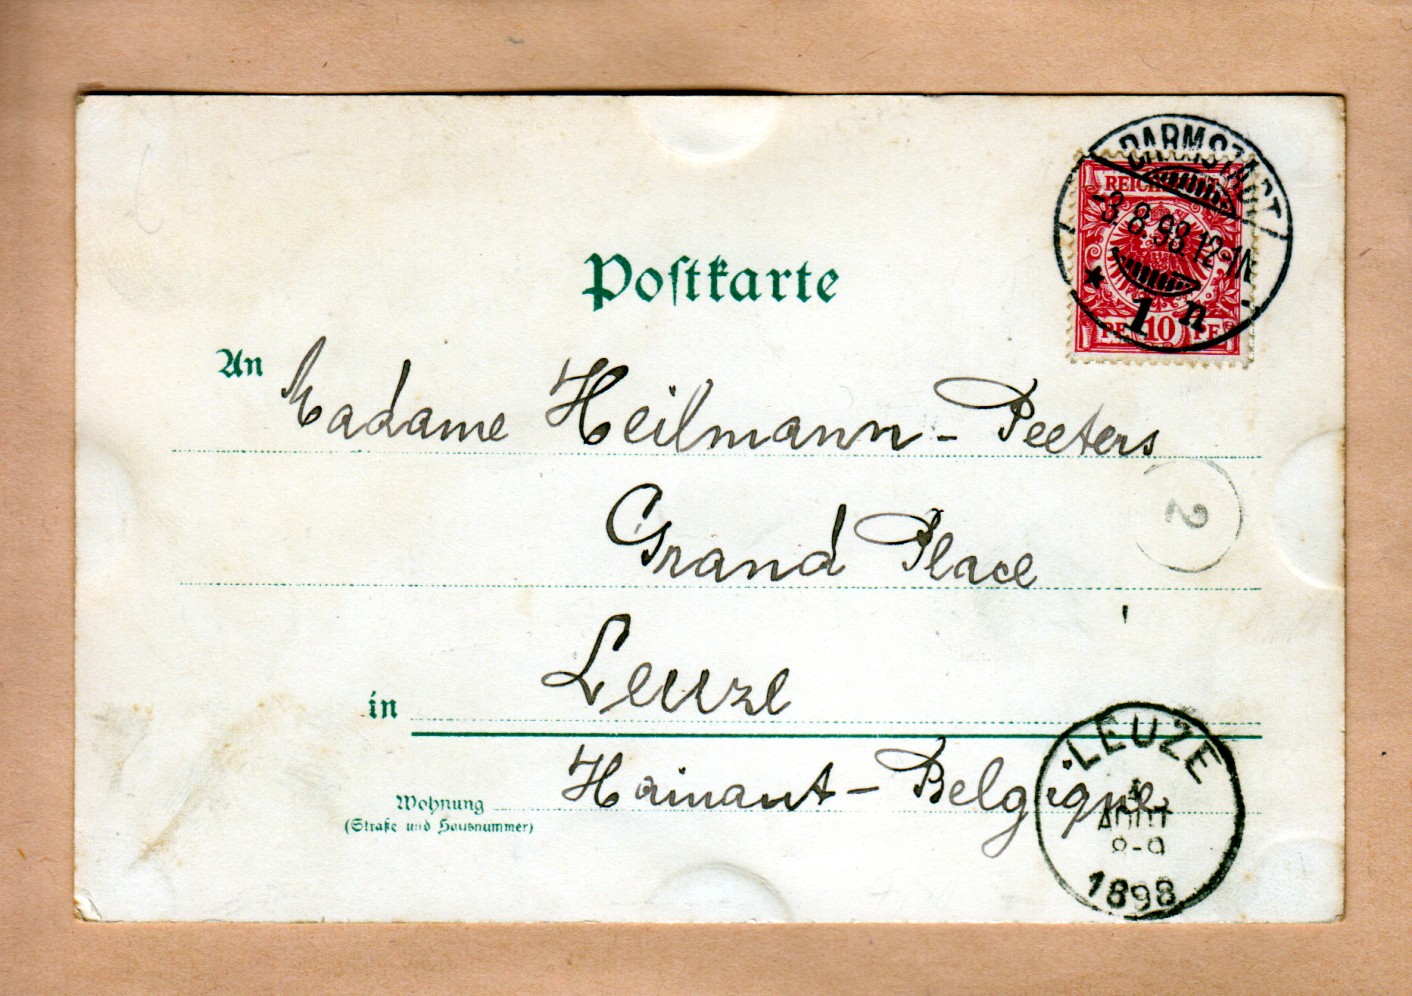 DARMSTADT
REICHSPOST
-3.8.98.12-1N
* 1 n
PF 10 PF
Postkarte
An Madame Heilmann - Peeters
2
Grand Place
in Leuze
Hainaut - Belgique
Wohnung
(Straße und Hausnummer)
LEUZE
4
AOUT
8-9
1898